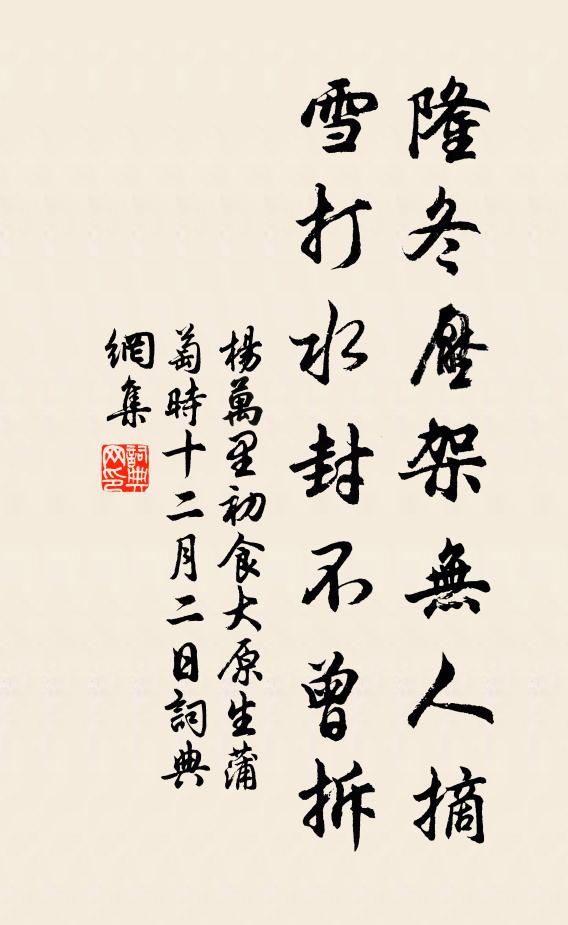 隆冬壓架無人摘
雪打水封不曾拆
楊萬里初食大原生蒲
萄時十二月二日詞典
網集
詞典
网印